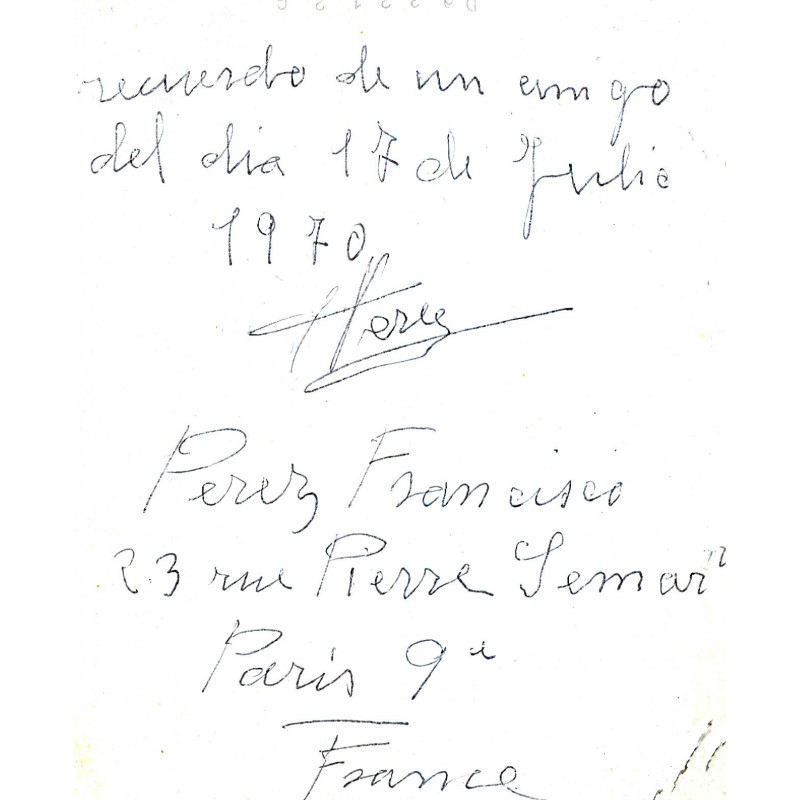 recuerdo de un amigo
del dia 17 de Julio
1970
Perez Francisco
23 rue Pierre Semarn
Paris 9e
France